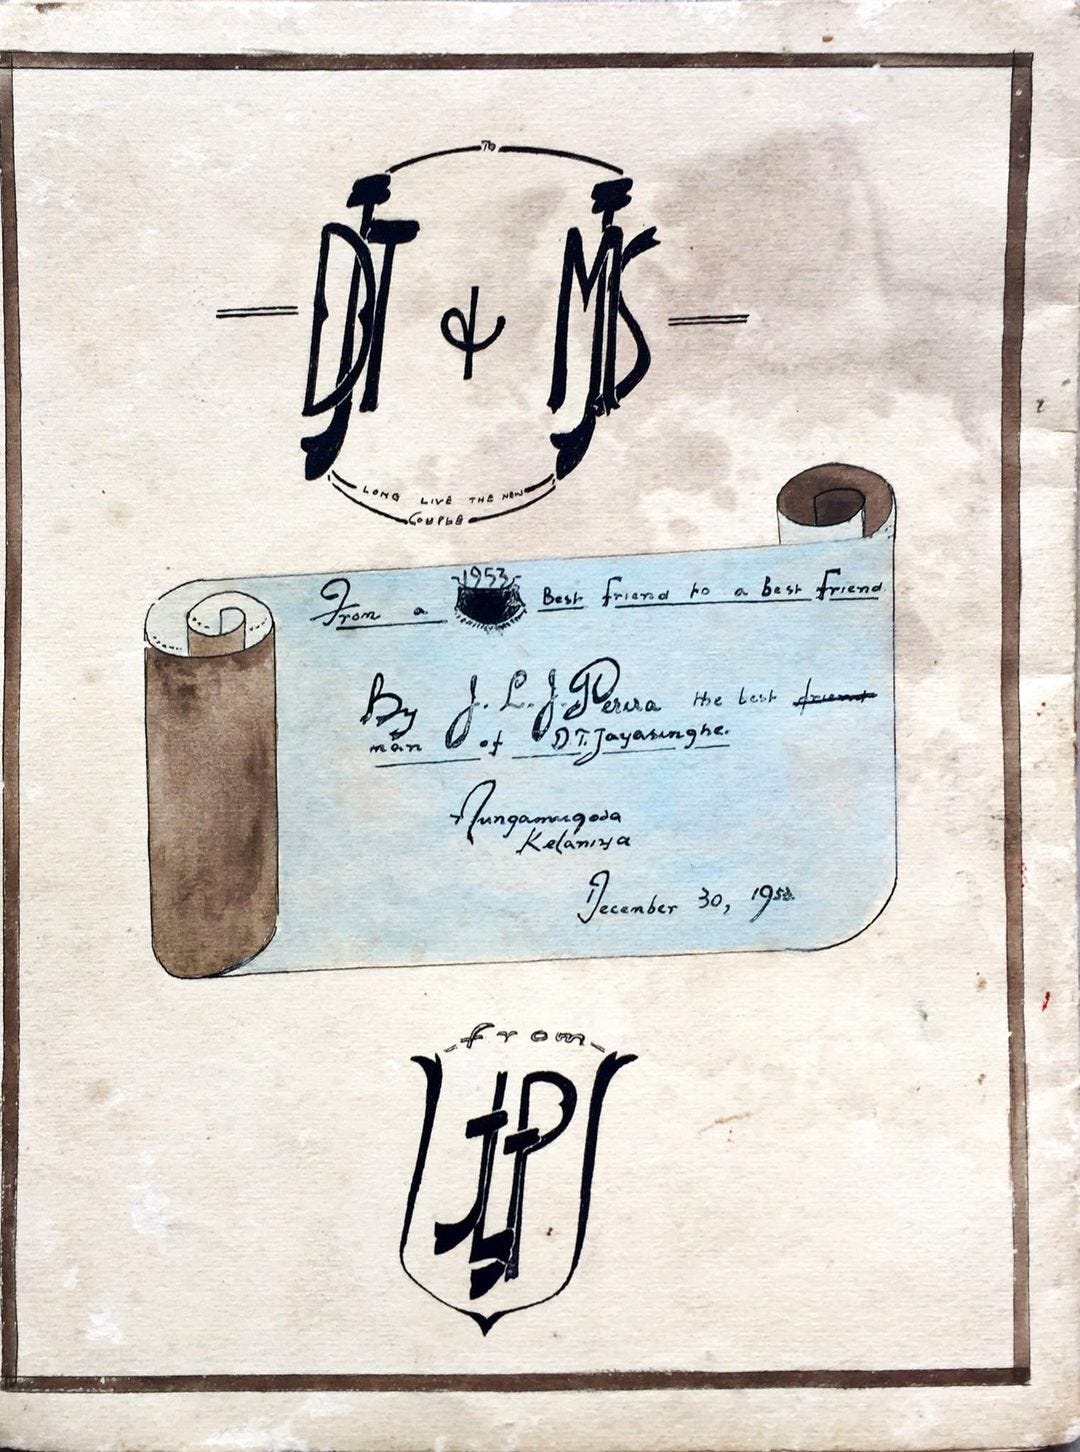 To
DJT & MJS
LONG LIVE THE NEW
COUPLE
1953
From a Best friend to a best friend
By J. L. J. Perera the best friend
man of D.T. Jayasinghe.
Nungamugoda
Kelaniya
December 30, 1953.
from
JLJP